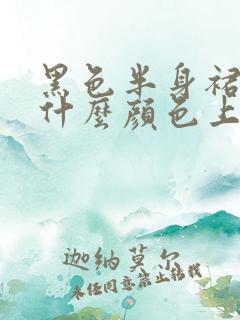 黑色半身裙
什麼顏色上
迦納莫尔
未经同意禁止转载